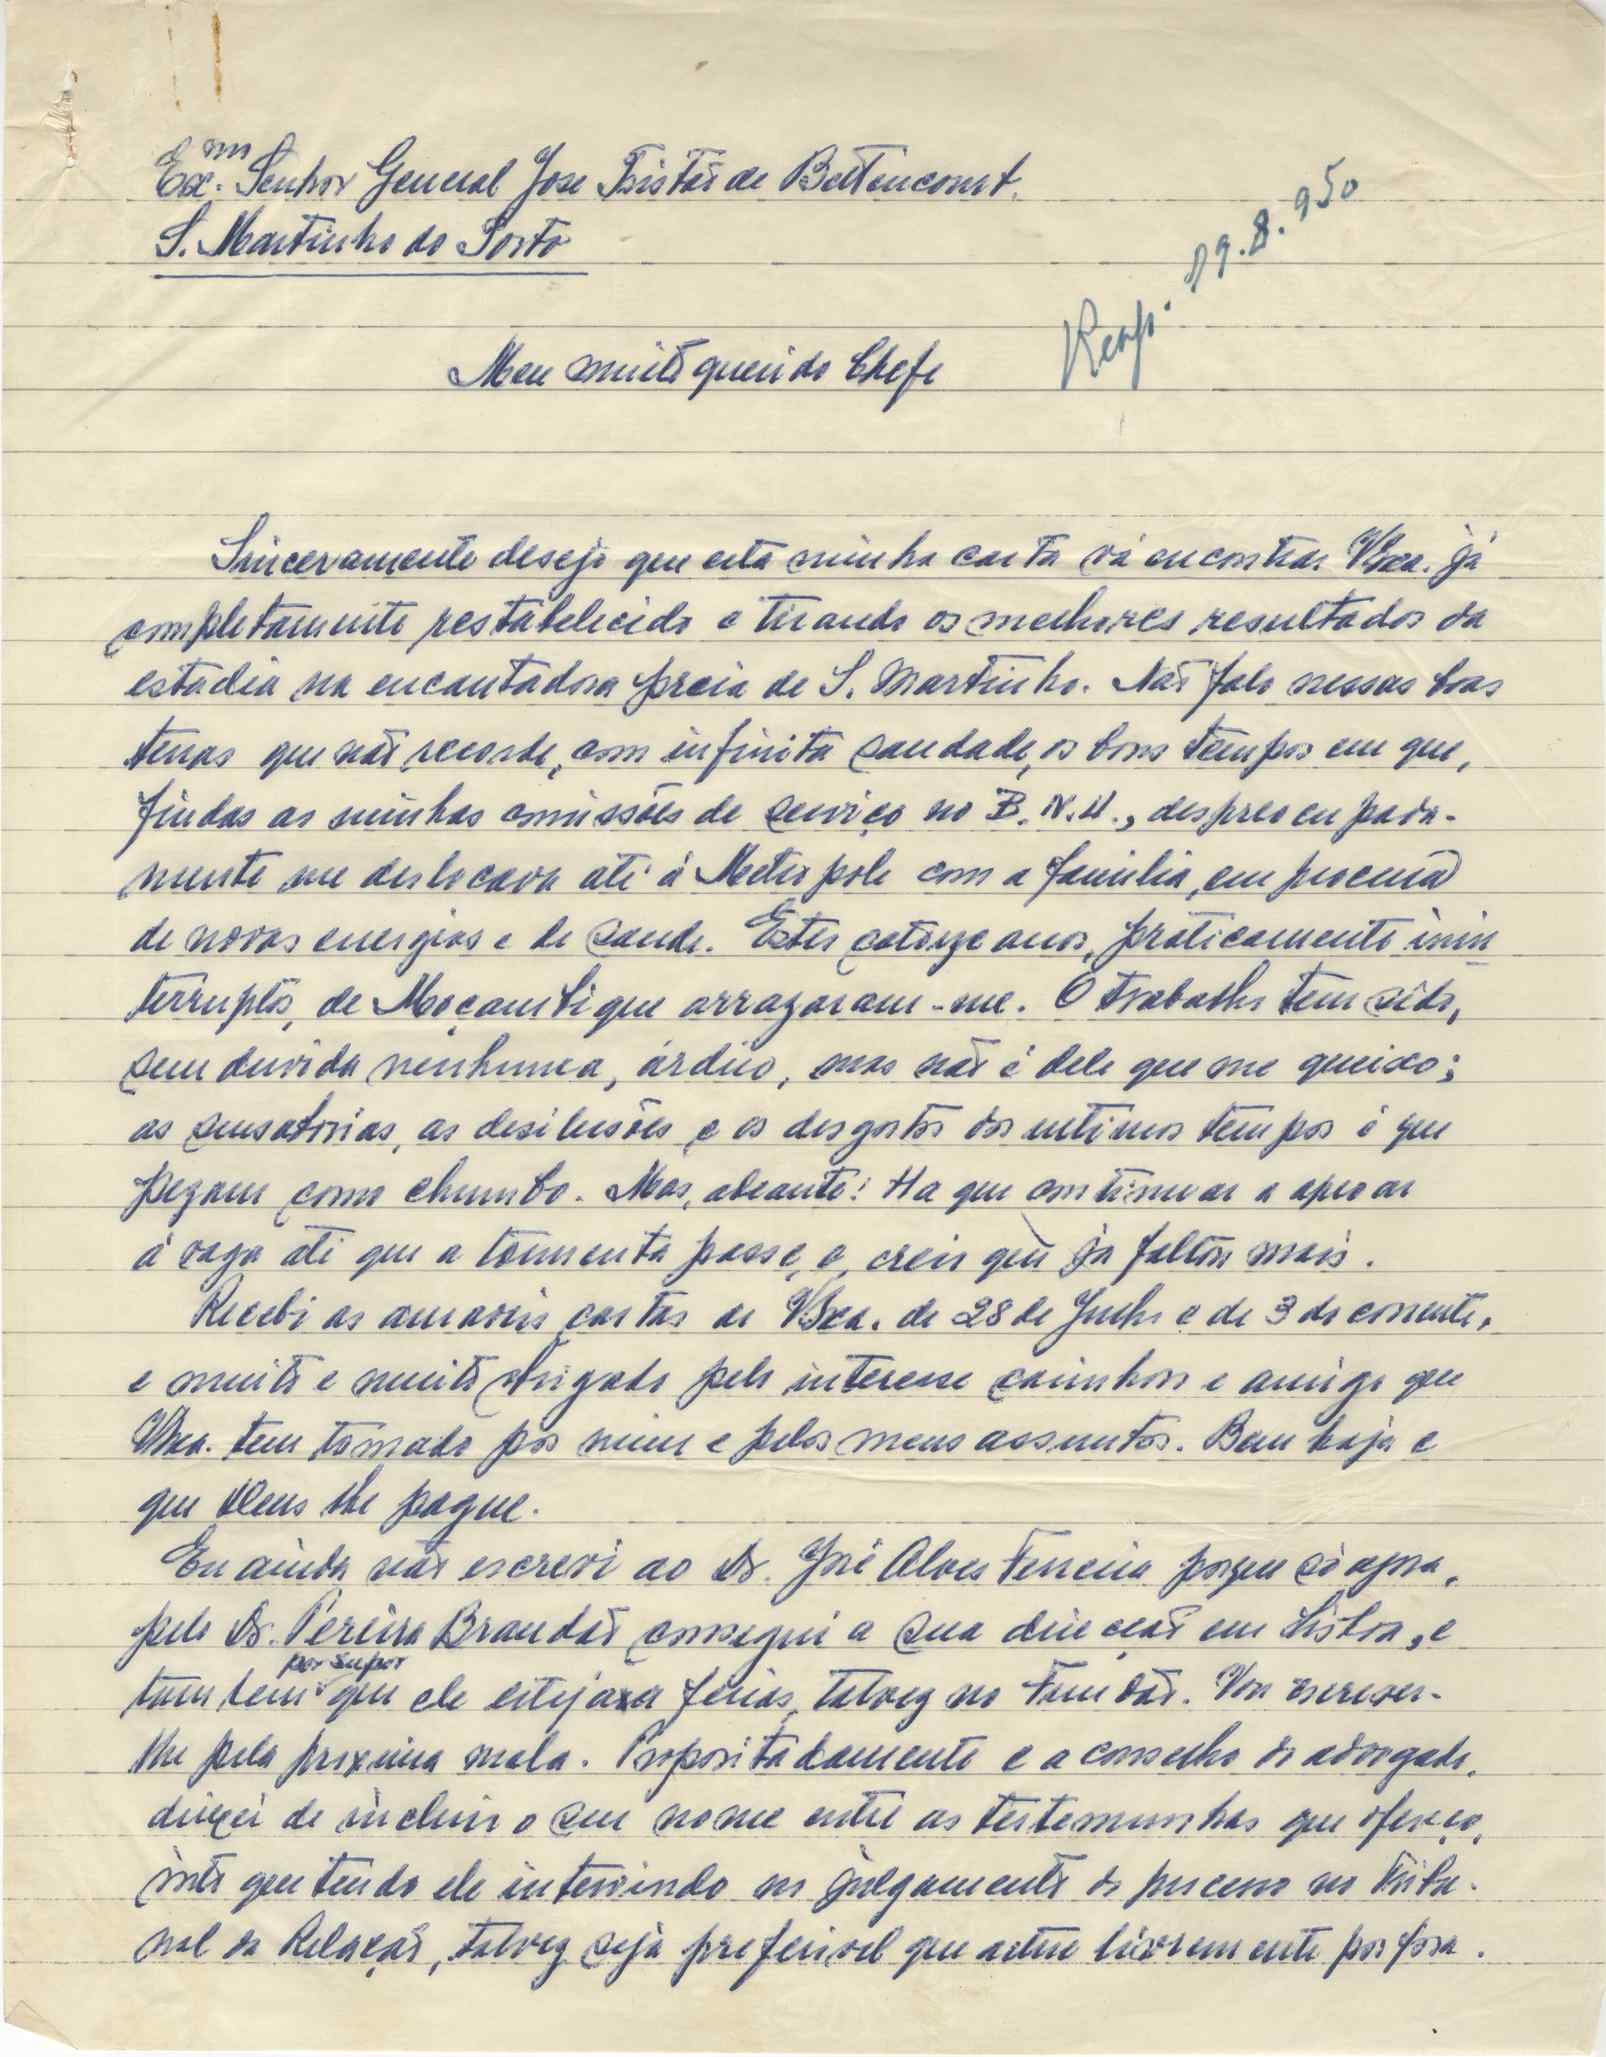 Exmo. Senhor General Jose Tristão de Bettencourt.
S. Martinho do Porto
Resp. 19.8.950
Meu muito querido Chefe
Sinceramente desejo que esta minha carta vá encontrar V.Exa. já
completamente restabelecido e tirando os melhores resultados da
estadia na encantadora praia de S. Martinho. Não falo nessas boas
terras que não recorde, com infinita saudade, os bons tempos em que,
findas as minhas comissões de serviço no B.N.U., despreocupada-
mente me deslocava até á Metropole com a familia, em procura
de novas energias e de saude. Estes catorze anos, práticamente inin
terruptos, de Moçambique arrazaram-me. O trabalho tem sido,
sem duvida nenhuma, árduo, mas não é dele que me queixo;
as sensaborias, as desilusões e os desgostos dos ultimos tempos é que
pezam como chumbo. Mas, adeante! Ha que continuar a aproar
á vaga até que a tormenta passe, e, creio que já faltou mais.
Recebi as amaveis cartas de V.Exa. de 28 de Julho e de 3 do corrente,
e muito e muito obrigado pelo interesse carinhoso e amigo que
V.Exa. tem tomado por mim e pelos meus assuntos. Bem haja e
que Deus lhe pague.
Eu ainda não escrevi ao Dr. José Alves Ferreira porque só agora,
pelo Dr. Pereira Brandão consegui a sua direcção em Lisboa, e
por supor
tambem que ele esteja a ferias, talvez no Fundão. Vou escrever-
lhe pela proxima mala. Propositadamente e a conselho do advogado,
deixei de incluir o seu nome entre as testemunhas que ofereço,
visto que tendo ele intervindo no julgamento do processo no Tribu-
nal da Relação, talvez seja preferivel que actue livremente por fora.